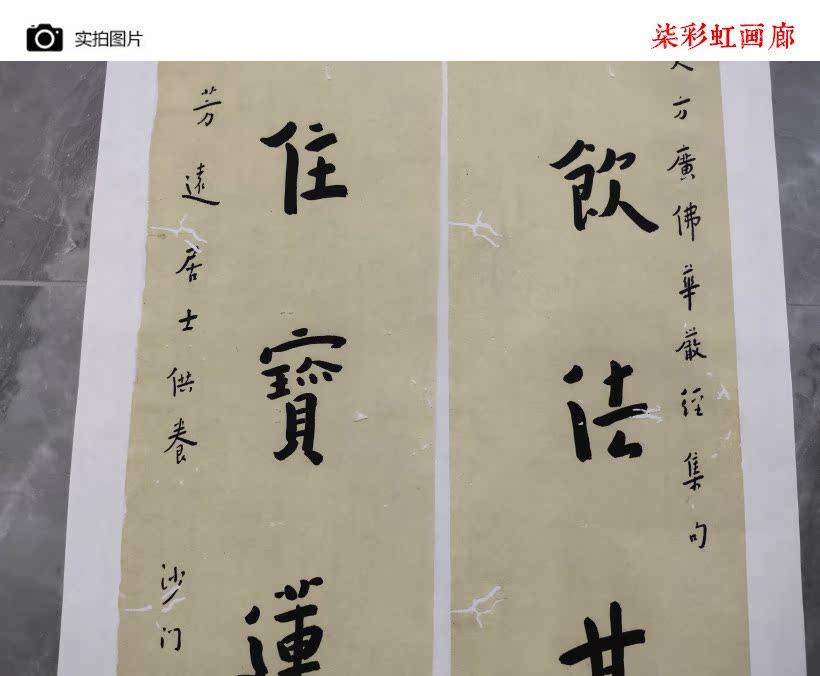 实拍图片
柒彩虹画廊
大方廣佛華嚴經集句
飲法甘
住寶蓮
芳遠居士供養 沙门